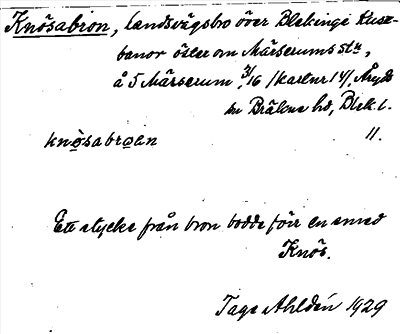 Knösabron, landsvägsbro över Blekinge Kust-
banor öster om Märserums stn,
å 5 Märserum 3/16 /kartnr 14/, Åryds
sn Bräkne hd, Blek. l.
knösabroan 11.
Ett stycke från bron bodde förr en smed
Knös.
Tage Ahldén 1929